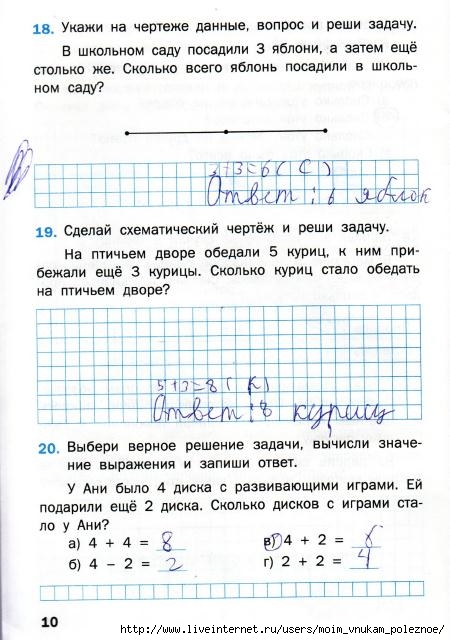 18. Укажи на чертеже данные, вопрос и реши задачу.
В школьном саду посадили 3 яблони, а затем ещё
столько же. Сколько всего яблонь посадили в школь-
ном саду?
3+3=6 ( С )
Ответ : 6 яблок
19. Сделай схематический чертёж и реши задачу.
На птичьем дворе обедали 5 куриц, к ним при-
бежали ещё 3 курицы. Сколько куриц стало обедать
на птичьем дворе?
5+3=8 ( К )
Ответ : 8 куриц
20. Выбери верное решение задачи, вычисли значе-
ние выражения и запиши ответ.
У Ани было 4 диска с развивающими играми. Ей
подарили ещё 2 диска. Сколько дисков с играми ста-
ло у Ани?
а) 4 + 4 = 8 в) 4 + 2 = 6
б) 4 – 2 = 2 г) 2 + 2 = 4
10
http://www.liveinternet.ru/users/moim_vnukam_poleznoe/